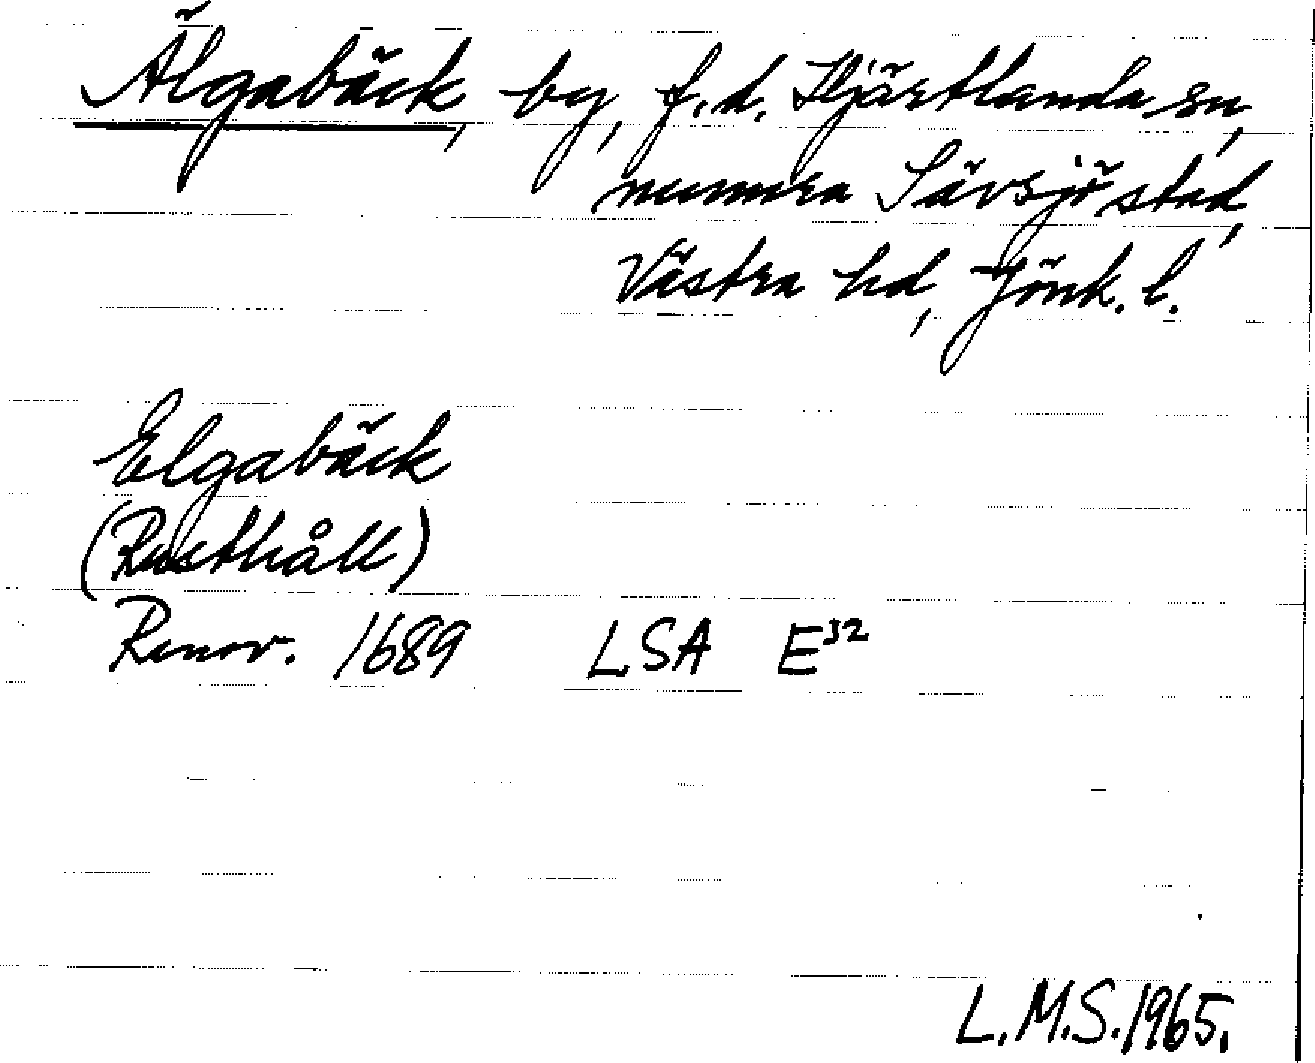 Älgabäck, by, f.d. Hjärtlanda sn,
numera Sävsjö stad,
Västra hd, Jönk. l.
Elgabäck
(Rusthåll)
Renov. 1689 LSA E32
L.M.S. 1965.